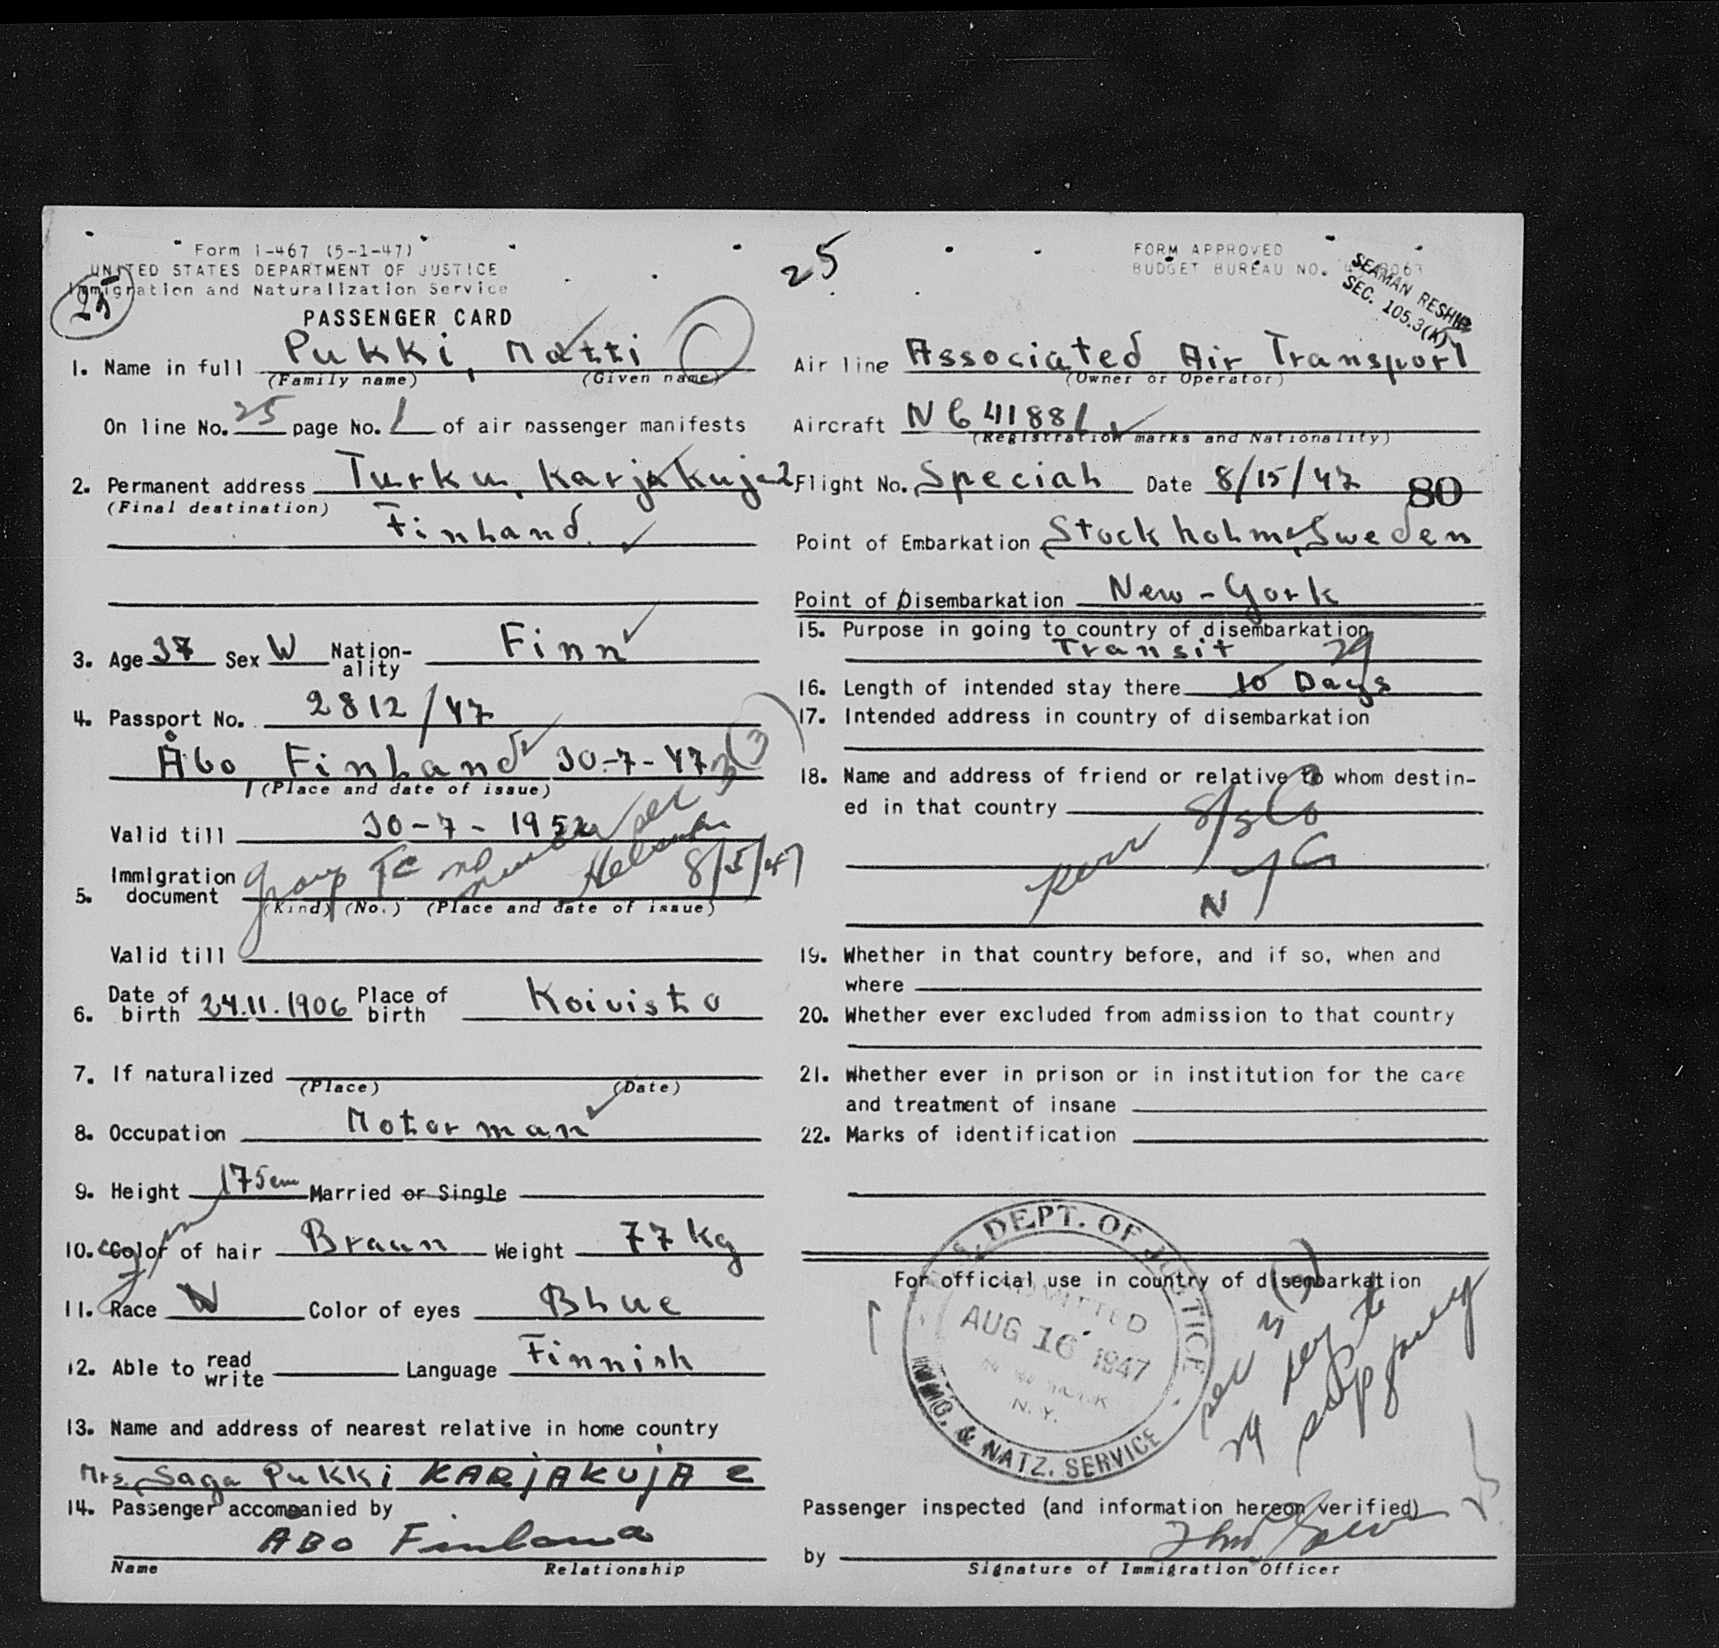 Form I-467 (5-1-47)
UNITED STATES DEPARTMENT OF JUSTICE
Immigration and Naturalization Service
25
PASSENGER CARD
25
FORM APPROVED
BUDGET BUREAU NO.
SEAMAN RESHIP
SEC. 105.3(K)
1. Name in full Pukki, Matti
(Family name) (Given name)
On line No. 25 page No. 1 of air passenger manifests
2. Permanent address Turku, Karjakuja 2
(Final destination)
Finland.
3. Age 37 Sex W Nation-ality Finn
4. Passport No. 2812/47
Åbo, Finland 30-7-47
(Place and date of issue)
Valid till 30-7-1952
5. Immigration document 8/5/47
(Kind) (No.) (Place and date of issue)
Valid till
6. Date of birth 24.11.1906 Place of birth Koivisto
7. If naturalized
(Place) (Date)
8. Occupation Motorman
9. Height 175 cm Married or Single
10. Color of hair Braun Weight 77 kg
11. Race W Color of eyes Blue
12. Able to read write Language Finnish
13. Name and address of nearest relative in home country
Mrs. Saga Pukki KARJAKUJA 2
14. Passenger accompanied by
ABO Finland
Name Relationship
Air line Associated Air Transport
(Owner or Operator)
Aircraft NC 41881
(Registration marks and Nationality)
Flight No. Special Date 8/15/47 80
Point of Embarkation Stockholm, Sweden
Point of Disembarkation New-York
15. Purpose in going to country of disembarkation
Transit 29
16. Length of intended stay there 10 Days
17. Intended address in country of disembarkation
18. Name and address of friend or relative to whom destin-
ed in that country
N Y C
19. Whether in that country before, and if so, when and
where
20. Whether ever excluded from admission to that country
21. Whether ever in prison or in institution for the care
and treatment of insane
22. Marks of identification
For official use in country of disembarkation
U.S. DEPT. OF JUSTICE
ADMITTED
AUG 16 1947
NEW YORK
N.Y.
IMMG. & NATZ. SERVICE
Passenger inspected (and information hereon verified)
by
Signature of Immigration Officer